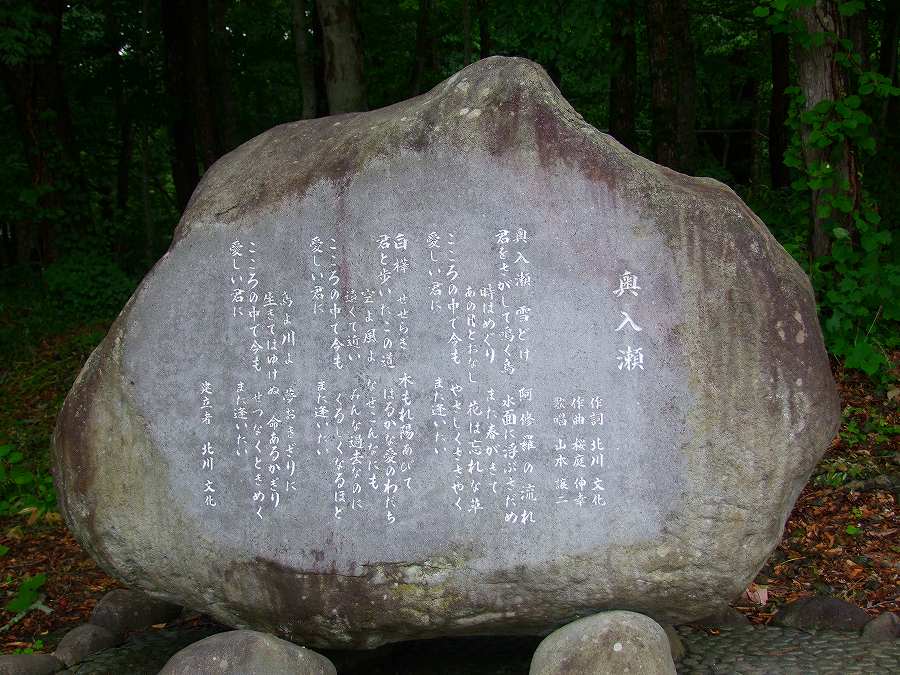 奥入瀬
作詞 北川 文化
作曲 桜庭 伸幸
歌唱 山本 譲二
奥入瀬 雪どけ 阿修羅の流れ
君をさがして鳴く鳥 水面に浮ぶさだめ
時はめぐり また春がきて
あの日とおなし 花は忘れな草
こころの中で今も やさしくささやく
愛しい君に また逢いたい
白樺 せせらぎ 木もれ陽あびて
君と歩いたこの道 はるかな愛のわだち
空よ風よ なぜこんなにも
遠くて近い みんな過去なのに
こころの中で今も くるしくなるほど
愛しい君に また逢いたい
鳥よ川よ 夢おきざりに
生きてはゆけぬ 命あるかぎり
こころの中で今も せつなくときめく
愛しい君に また逢いたい
建立者 北川 文化